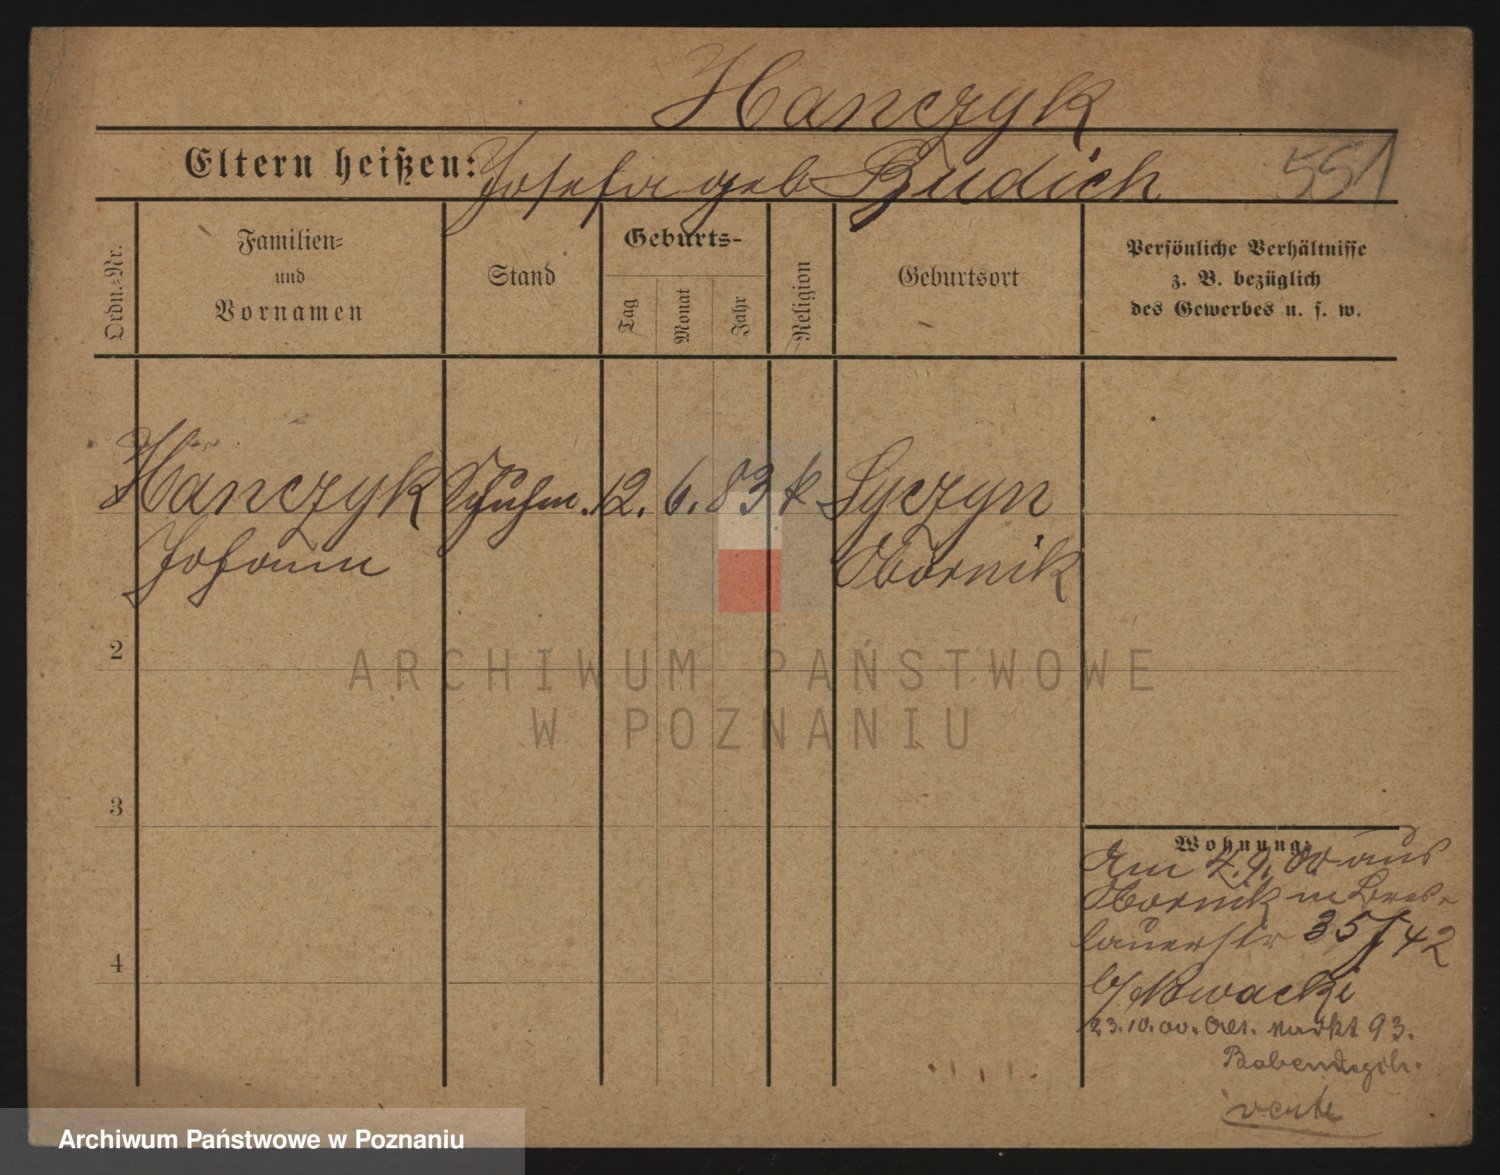 Hanczyk
Eltern heißen: Josefa geb Budich 551
Ordn.-Nr.
Familien-
und
Vornamen
Stand
Geburts-
Tag
Monat
Jahr
Religion
Geburtsort
Persönliche Verhältnisse
z. B. bezüglich
des Gewerbes u. s. w.
Hanczyk Schuhm. 12. 6. 83 k Lyczyn
Johann Obornik
2
ARCHIWUM PAŃSTWOWE
W POZNANIU
3
4
Wohnung:
Am 4.9.00 aus
Obornik n Bres-
lauerstr 35/42
b/ Nowacki
23.10.00. Alt. Markt 93.
verte
Archiwum Państwowe w Poznaniu